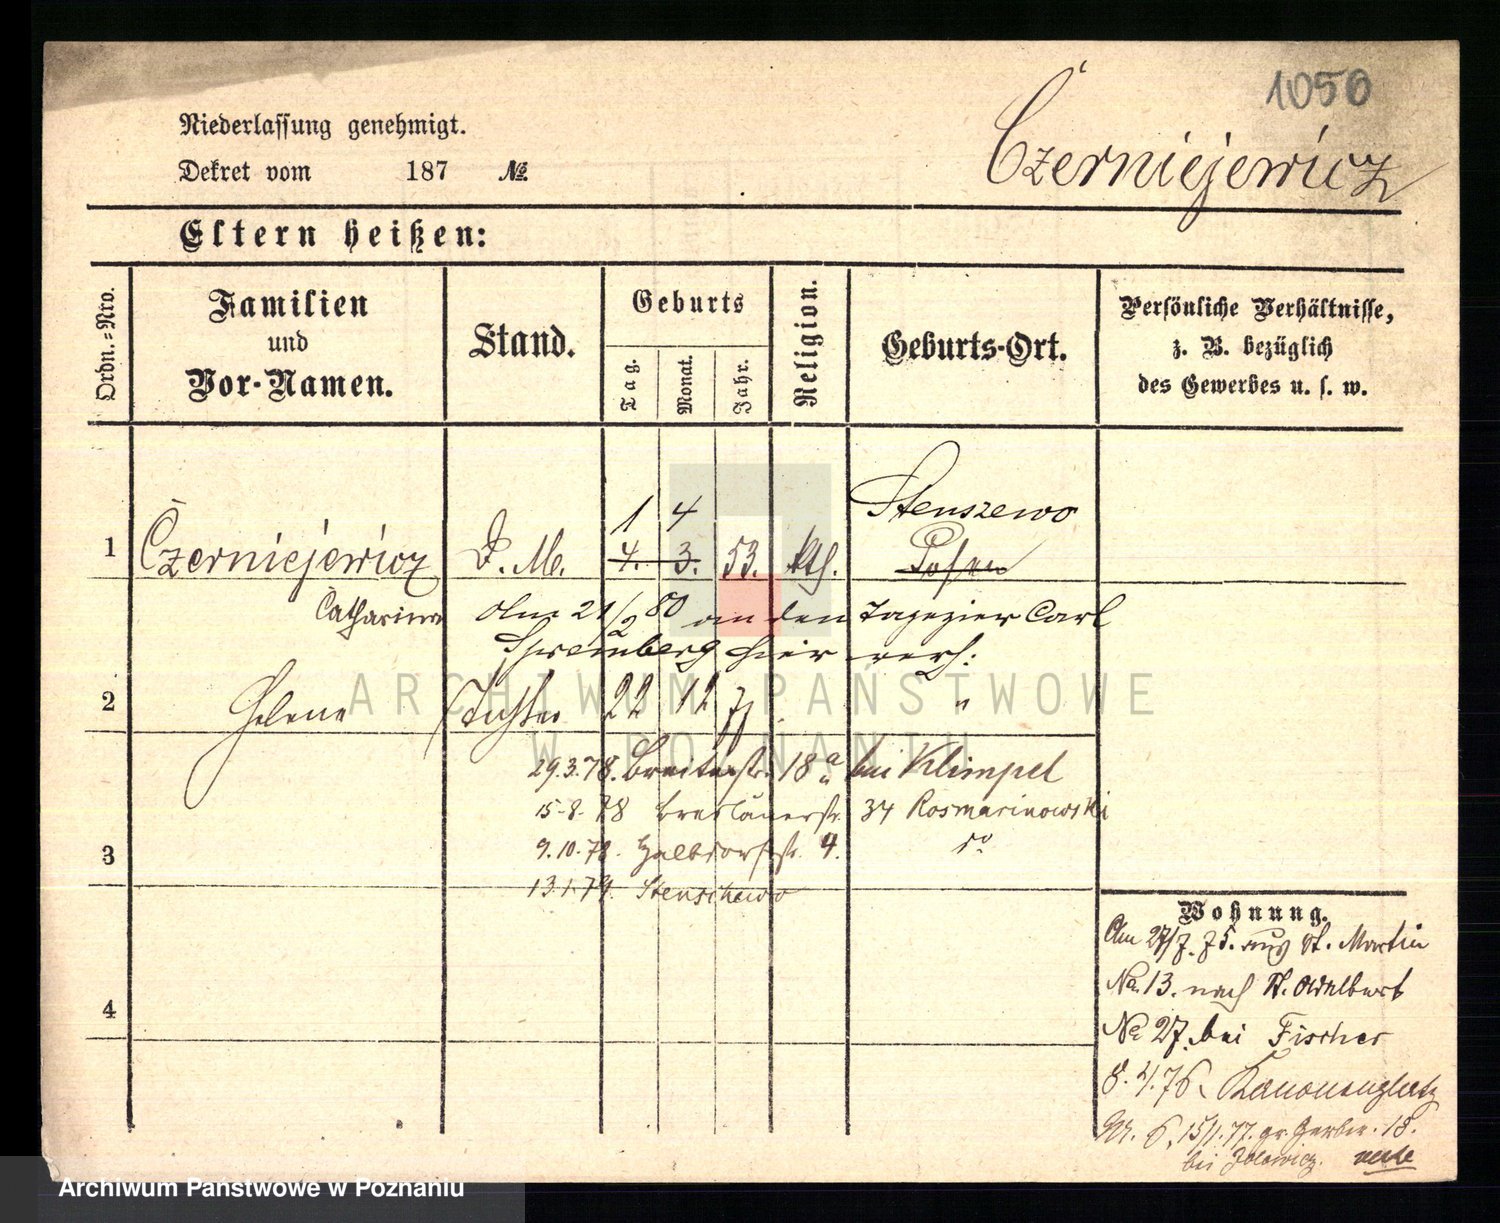 1050
Niederlassung genehmigt.
Czerniejewicz
Dekret vom 187 No.
Eltern heißen:
Ordn.-Nro.
Familien
und
Vor-Namen.
Stand.
Geburts
Tag.
Monat.
Jahr.
Religion.
Geburts-Ort.
Persönliche Verhältnisse,
z. B. bezüglich
des Gewerbes u. s. w.
1 4 Stenszewo
1 Czerniejewicz D. M. 4. 3. 53. kth. Posen
Catharina Am 21/2 80 an den Tapezier Carl
Spremberg hier verh:
2 Helene Tochter 22 12 77 "
29.3.78. Breitestr. 18a bei Klimpel
15-8-78 Breslauerstr. 34 Rosmarinowski
3 9.10.78. Halbdorfstr. 4.
13.1.79. Stenschewo
Wohnung.
Am 27/7. 75. aus St. Martin
No. 13. nach St. Adalbert
4 No 27. bei Fischer
8. 4. 76. Kanonenplatz
Nr. 6. 15/1. 77. gr. Gerber. 18.
bei
ARCHIWUM PAŃSTWOWE
W POZNANIU
Archiwum Państwowe w Poznaniu